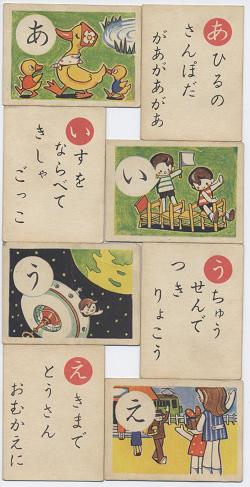 あ
あひるの
さんぽだ
があがあがあ
いすを
ならべて
きしゃ
ごっこ
い
う
うちゅう
せんで
つき
りょこう
えきまで
とうさん
おむかえに
え